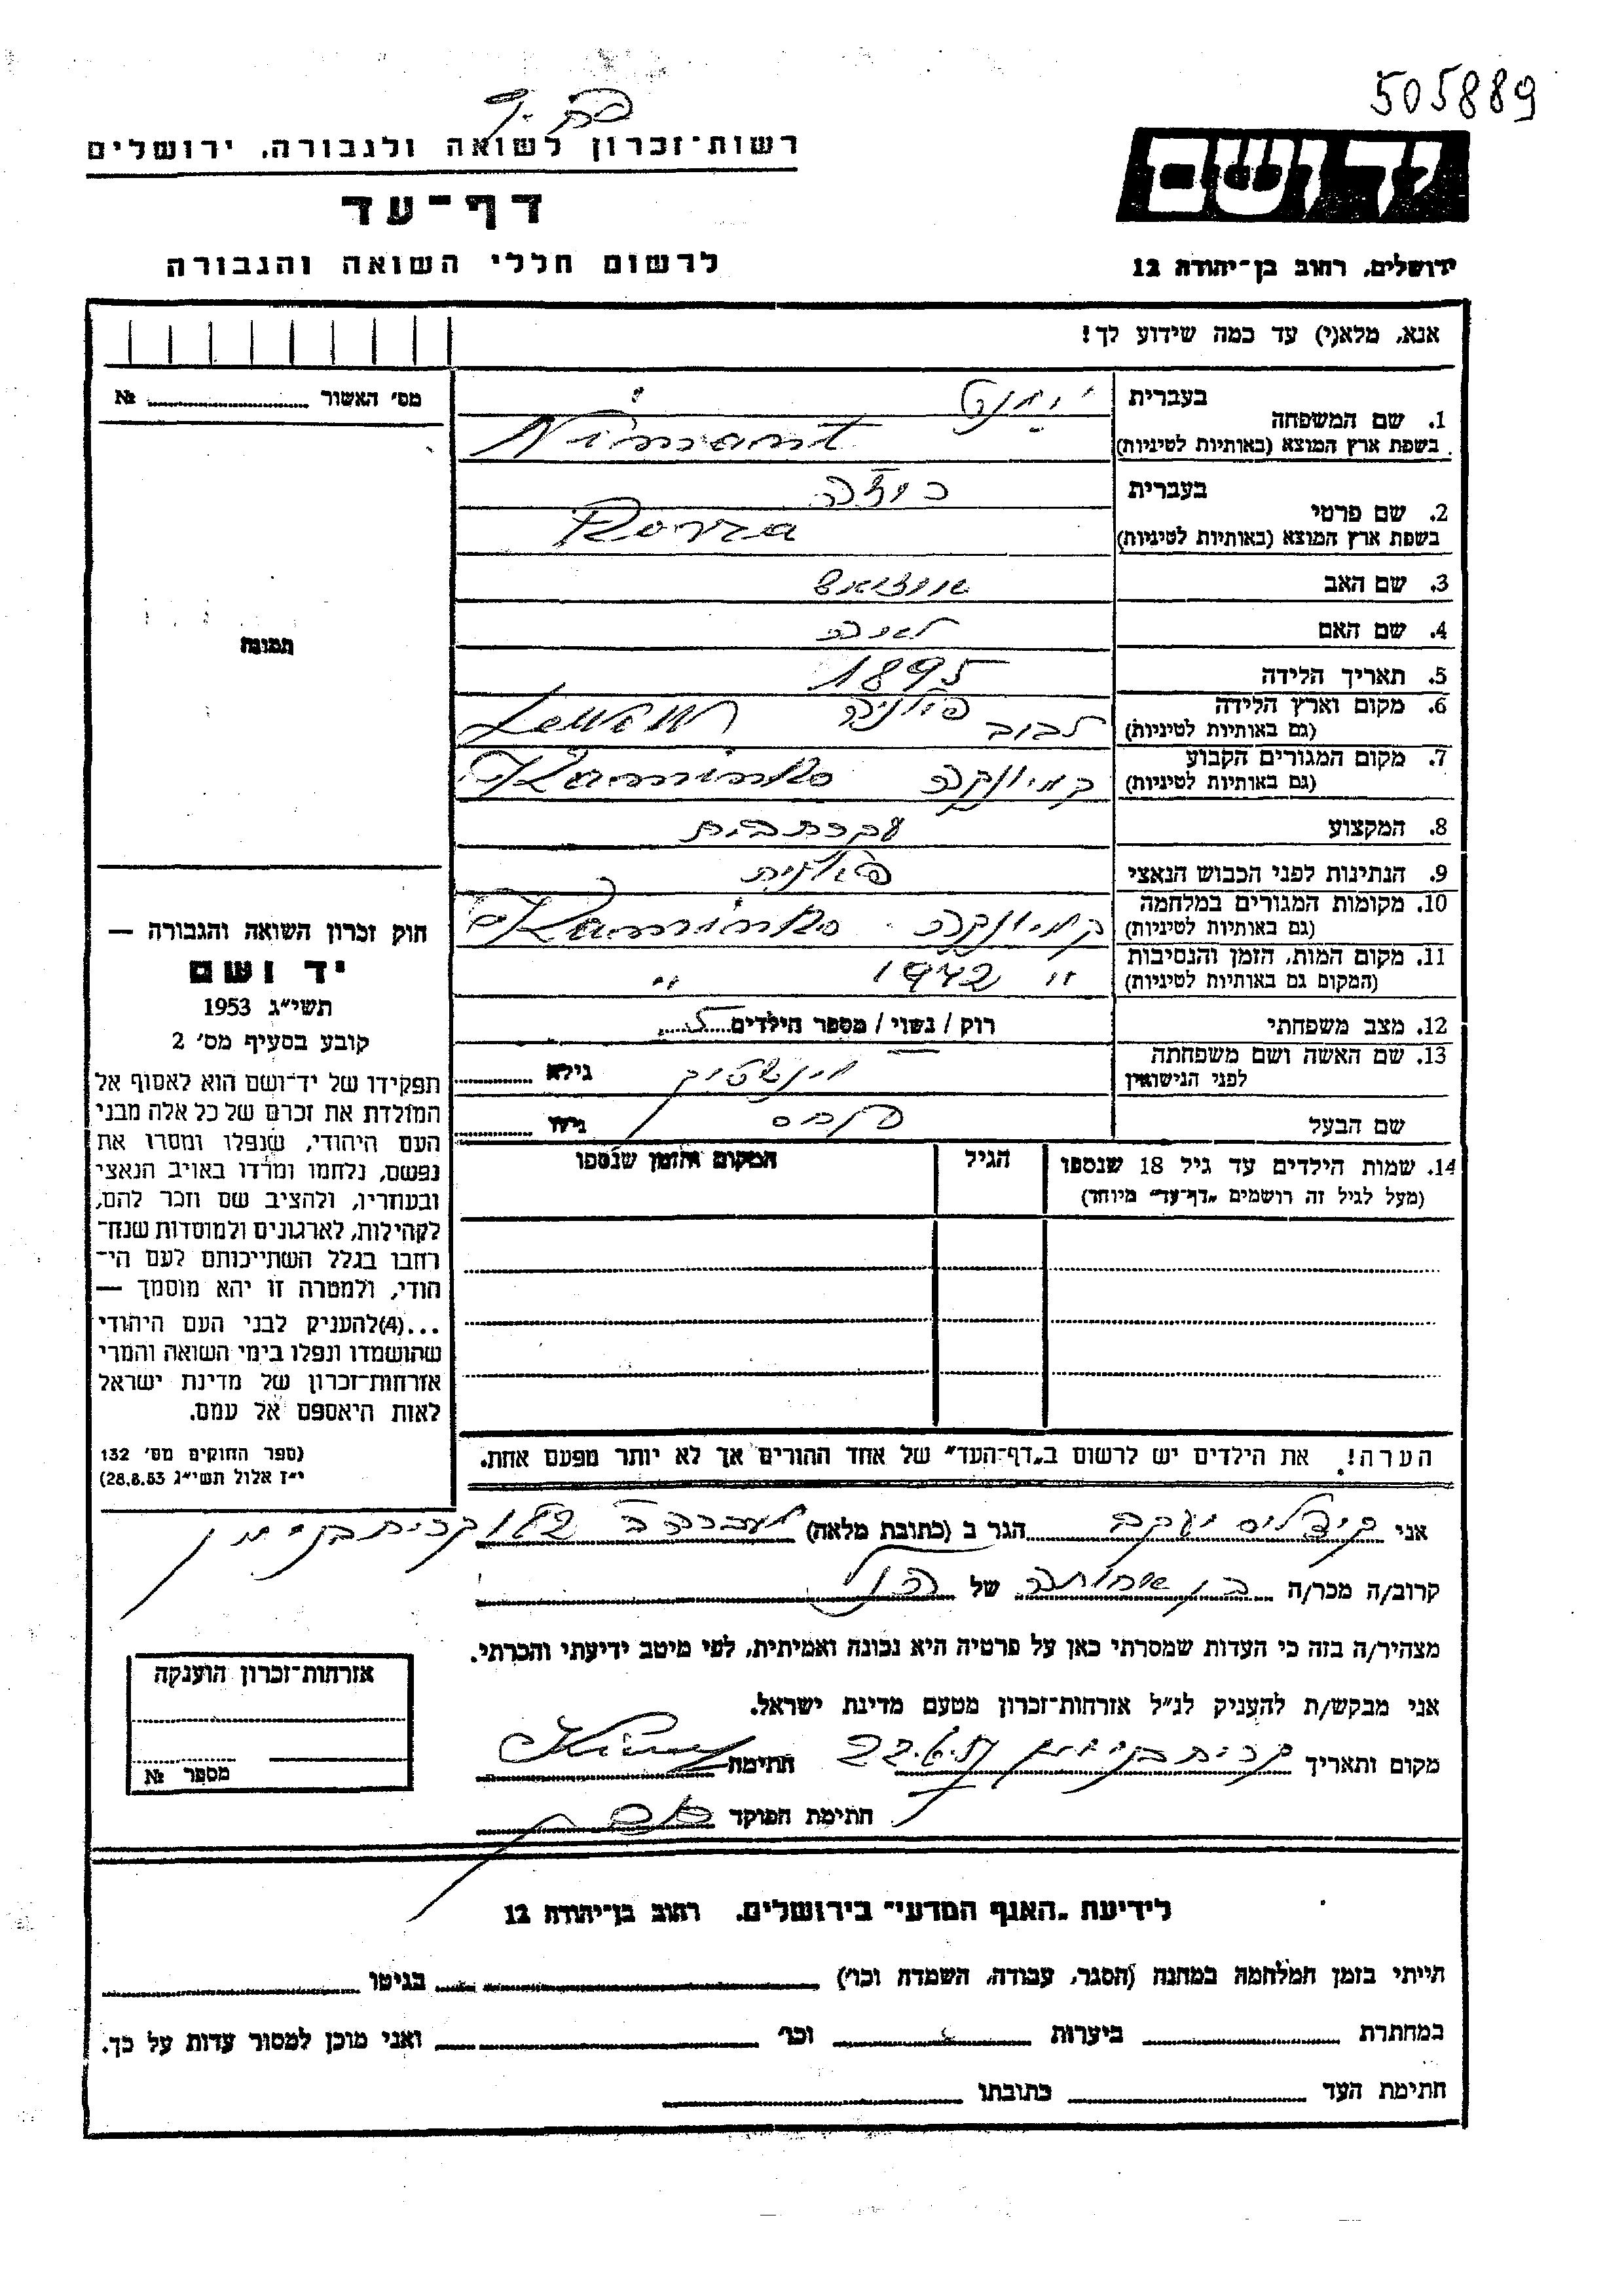 505889
רשות־זכרון לשואה ולגבורה, ירושלים
יד ושם
דף־עד
לרשום חללי השואה והגבורה
ירושלים, רחוב בן־יהודה 12
אנא, מלא(י) עד כמה שידוע לך!
מס׳ האשור № 
1. שם המשפחה
בעברית
בשפת ארץ המוצא (באותיות לטיניות) Nimant
2. שם פרטי
בעברית רוזה
בשפת ארץ המוצא (באותיות לטיניות) Rorza
3. שם האב
4. שם האם
5. תאריך הלידה 1895
6. מקום וארץ הלידה
(גם באותיות לטיניות) לבוב פולניה
7. מקום המגורים הקבוע
(גם באותיות לטיניות) קמיונקה Kaminko
8. המקצוע עקרת בית
9. הנתינות לפני הכבוש הנאצי פולנית
10. מקומות המגורים במלחמה
(גם באותיות לטיניות) קמיונקה Kaminko
11. מקום המות, הזמן והנסיבות
(המקום גם באותיות לטיניות) " 1942 "
12. מצב משפחתי רוק / נשוי / מספר הילדים 5
13. שם האשה ושם משפחתה
לפני הנישואין גילא
שם הבעל פנחס גילו
14. שמות הילדים עד גיל 18 שנספו
(מעל לגיל זה רושמים „דף־עד" מיוחד)
הגיל
המקום והזמן שנספו
תמונה
חוק זכרון השואה והגבורה —
יד ושם
תשי״ג 1953
קובע בסעיף מס׳ 2
תפקידו של יד־ושם הוא לאסוף אל
המולדת את זכרם של כל אלה מבני
העם היהודי, שנפלו ומסרו את
נפשם, נלחמו ומרדו באויב הנאצי
ובעוזריו, ולהציב שם וזכר להם,
לקהילות, לארגונים ולמוסדות שנח־
רחבו בגלל השתייכותם לעם הי־
הודי, ולמטרה זו יהא מוסמך —
...(4)להעניק לבני העם היהודי
שהושמדו ונפלו בימי השואה והמרי
אזרחות־זכרון של מדינת ישראל
לאות היאספם אל עמם.
(ספר החוקים מס׳ 132
י״ז אלול תשי״ג 28.8.53)
הערה! את הילדים יש לרשום ב„דף־העד" של אחד ההורים אך לא יותר מפעם אחת.
אני יעקב הגר ב (כתובת מלאה) קרית בנימין
קרוב/ה מכר/ה בן אחותה של הנ״ל
מצהיר/ה בזה כי העדות שמסרתי כאן על פרטיה היא נכונה ואמיתית, לפי מיטב ידיעתי והכרתי.
אני מבקש/ת להעניק לנ״ל אזרחות־זכרון מטעם מדינת ישראל.
מקום ותאריך קרית בנימין 22.6.57 חתימה
חתימת הפוקד
אזרחות־זכרון הוענקה
מספר №
לידיעת „האגף המדעי" בירושלים, רחוב בן־יהודה 12
הייתי בזמן המלחמה במחנה (הסגר, עבודה, השמדה וכו׳) בגיטו
במחתרת ביערות וכו׳ ואני מוכן למסור עדות על כך.
חתימת העד כתובתו